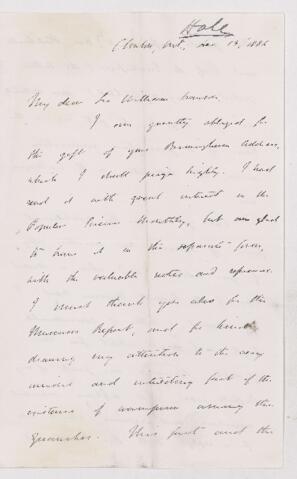 Hale
Clinton, Ont., Nov. 13, 1886
My dear Sir William Dawson,
I am greatly obliged for
the gift of your Birmingham Address,
which I shall prize highly. I had
read it with great interest in the
Popular Science Monthly, but am glad
to have it in the separate form,
with the valuable notes and
I must thank you also for the
Museum Report, and for kindly
drawing my attention to the very
and interesting fact of the
existence of wampum among the
Guanches. This fact and the